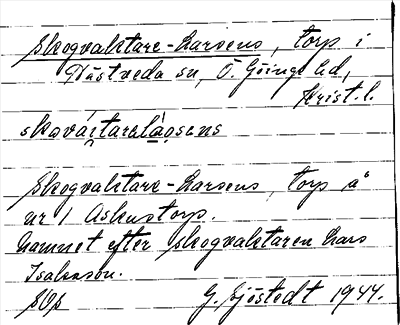 Skogvaktare-Larsens, torp i
Hästveda sn, Ö. Göinge hd,
Krist. l.
skovártarelàsens
Skogvaktare-Larsens, torp å
nr 1 Askustorp.
Namnet efter skogvaktaren Lars
Isaksson.
G. Sjöstedt 1944.